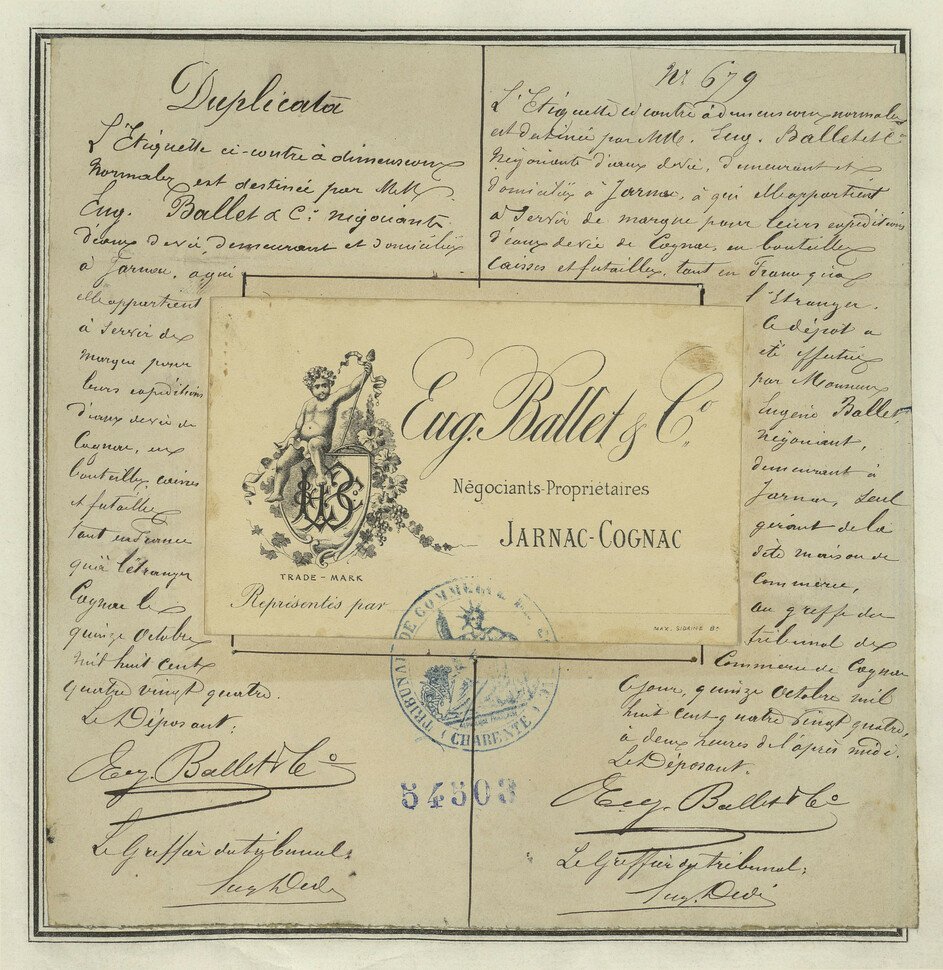 Duplicata
L'Etiquette ci-contre à dimensions
Normales est destinée par MM.
Eug. Ballet & Cie négociants
d'eaux de vie, demeurant et domiciliés
à Jarnac, à qui
elle appartient
à servir de
marque pour
leurs expéditions
d'eaux de vie de
Cognac, en
bouteilles, caisses
et futailles
tant en France
qu'à l'étranger
Cognac le
quinze Octobre
mil huit cent
quatre vingt quatre.
Le Déposant:
Eug. Ballet & Co
Le Greffier du tribunal:
No 679
L'Etiquette ci contre à dimensions normales
est destinée par MM. Eug. Ballet et Cie
Négociants d'eaux de vie, demeurant et
domiciliés à Jarnac, à qui elle appartient
à servir de marque pour leurs expéditions
d'eaux de vie de Cognac, en bouteilles
caisses et futailles, tant en France qu'à
l'Etranger.
Ce dépôt a
été effectué
par Monsieur
Eugène Ballet,
négociant,
demeurant à
Jarnac, seul
gérant de la
dite maison de
Commerce,
au greffe du
tribunal de
Commerce de Cognac
Ce jour, quinze Octobre mil
huit cent quatre vingt quatre,
à deux heures de l'après midi.
Le Déposant.
Eug. Ballet & Co
Le Greffier du tribunal:
Eug. Ballet & Co.
Négociants-Propriétaires
JARNAC-COGNAC
TRADE-MARK
Représentés par
TRIBUNAL DE COMMERCE DE
(CHARENTE)
54503